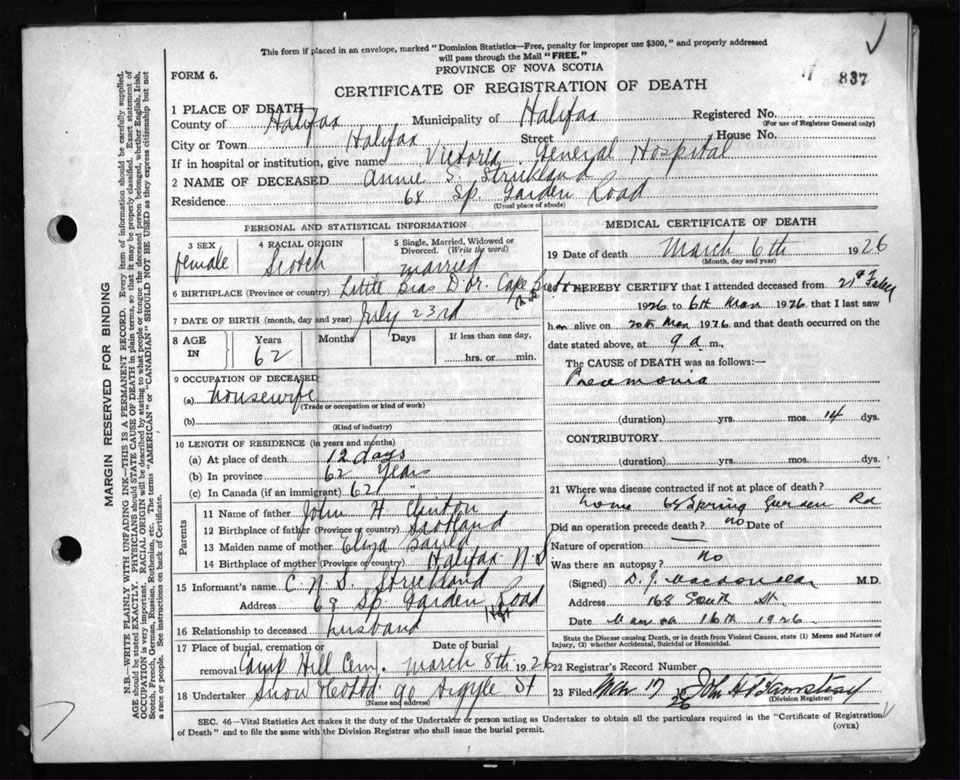 This form if placed in an envelope, marked "Dominion Statistics—Free, penalty for improper use $300," and properly addressed
will pass through the Mail "FREE."
PROVINCE OF NOVA SCOTIA
FORM 6.
837
CERTIFICATE OF REGISTRATION OF DEATH
1 PLACE OF DEATH
County of Halifax Municipality of Halifax Registered No.
(For use of Registrar General only)
City or Town Halifax Street House No.
If in hospital or institution, give name Victoria General Hospital
2 NAME OF DECEASED Annie S. Strickland
Residence 68 Sp. Garden Road
(Usual place of abode)
PERSONAL AND STATISTICAL INFORMATION
3 SEX 4 RACIAL ORIGIN 5 Single, Married, Widowed or
Divorced. (Write the word)
female Scotch married
6 BIRTHPLACE (Province or country) Little Bras D'or. Cape Breton
7 DATE OF BIRTH (month, day and year) July 23rd
8 AGE IN Years Months Days If less than one day,
62 hrs. or min.
9 OCCUPATION OF DECEASED
(a) housewife
(Trade or occupation or kind of work)
(b)
(Kind of industry)
10 LENGTH OF RESIDENCE (in years and months)
(a) At place of death 12 days
(b) In province 62 Years
(c) In Canada (if an immigrant) 62
Parents
11 Name of father John H
12 Birthplace of father (Province or country) Scotland
13 Maiden name of mother Eliza
14 Birthplace of mother (Province or country) Halifax N S
15 Informant's name C. N. S. Strickland
Address 68 Sp. Garden Road
Hfx
16 Relationship to deceased husband
17 Place of burial, cremation or Date of burial
removal Camp Hill Cem. March 8th 1926
18 Undertaker Snow 90 Argyle St
(Name and address)
MEDICAL CERTIFICATE OF DEATH
19 Date of death March 6th 1926
(Month, day and year)
I HEREBY CERTIFY that I attended deceased from 21st
1926 to 6th Mar 1926 that I last saw
her alive on Mar 1926 and that death occurred on the
date stated above, at 9 a m.,
The CAUSE OF DEATH was as follows:—
Pneumonia
(duration) yrs. mos. 14 dys.
CONTRIBUTORY
(duration) yrs. mos. dys.
21 Where was disease contracted if not at place of death?
home Spring Garden Rd
Did an operation precede death? no Date of
Nature of operation —
Was there an autopsy? no
(Signed) D. J. M.D.
Address 168 South St.
Date 16th 1926
State the Disease causing Death, or in death from Violent Causes, state (1) Means and Nature of
Injury, (2) whether Accidental, Suicidal or Homicidal.
22 Registrar's Record Number
23 Filed Mar 17 1926 John
(Division Registrar)
SEC. 46—Vital Statistics Act makes it the duty of the Undertaker or person acting as Undertaker to obtain all the particulars required in the "Certificate of Registration
of Death" and to file the same with the Division Registrar who shall issue the burial permit.
(OVER)
MARGIN RESERVED FOR BINDING
N.B.—WRITE PLAINLY WITH UNFADING INK—THIS IS A PERMANENT RECORD. Every item of information should be carefully supplied.
AGE should be stated EXACTLY. PHYSICIANS should STATE CAUSE OF DEATH in plain terms, so that it may be properly classified. Exact statement of
OCCUPATION is very important. RACIAL ORIGIN will be described by stating to what people or tongue the deceased person belonged, whether English, Irish,
Scotch, French, German, Russian, Ruthenian, etc. The terms "AMERICAN" or "CANADIAN" SHOULD NOT BE USED as they express citizenship but not
a race or people. See instructions on back of Certificate.